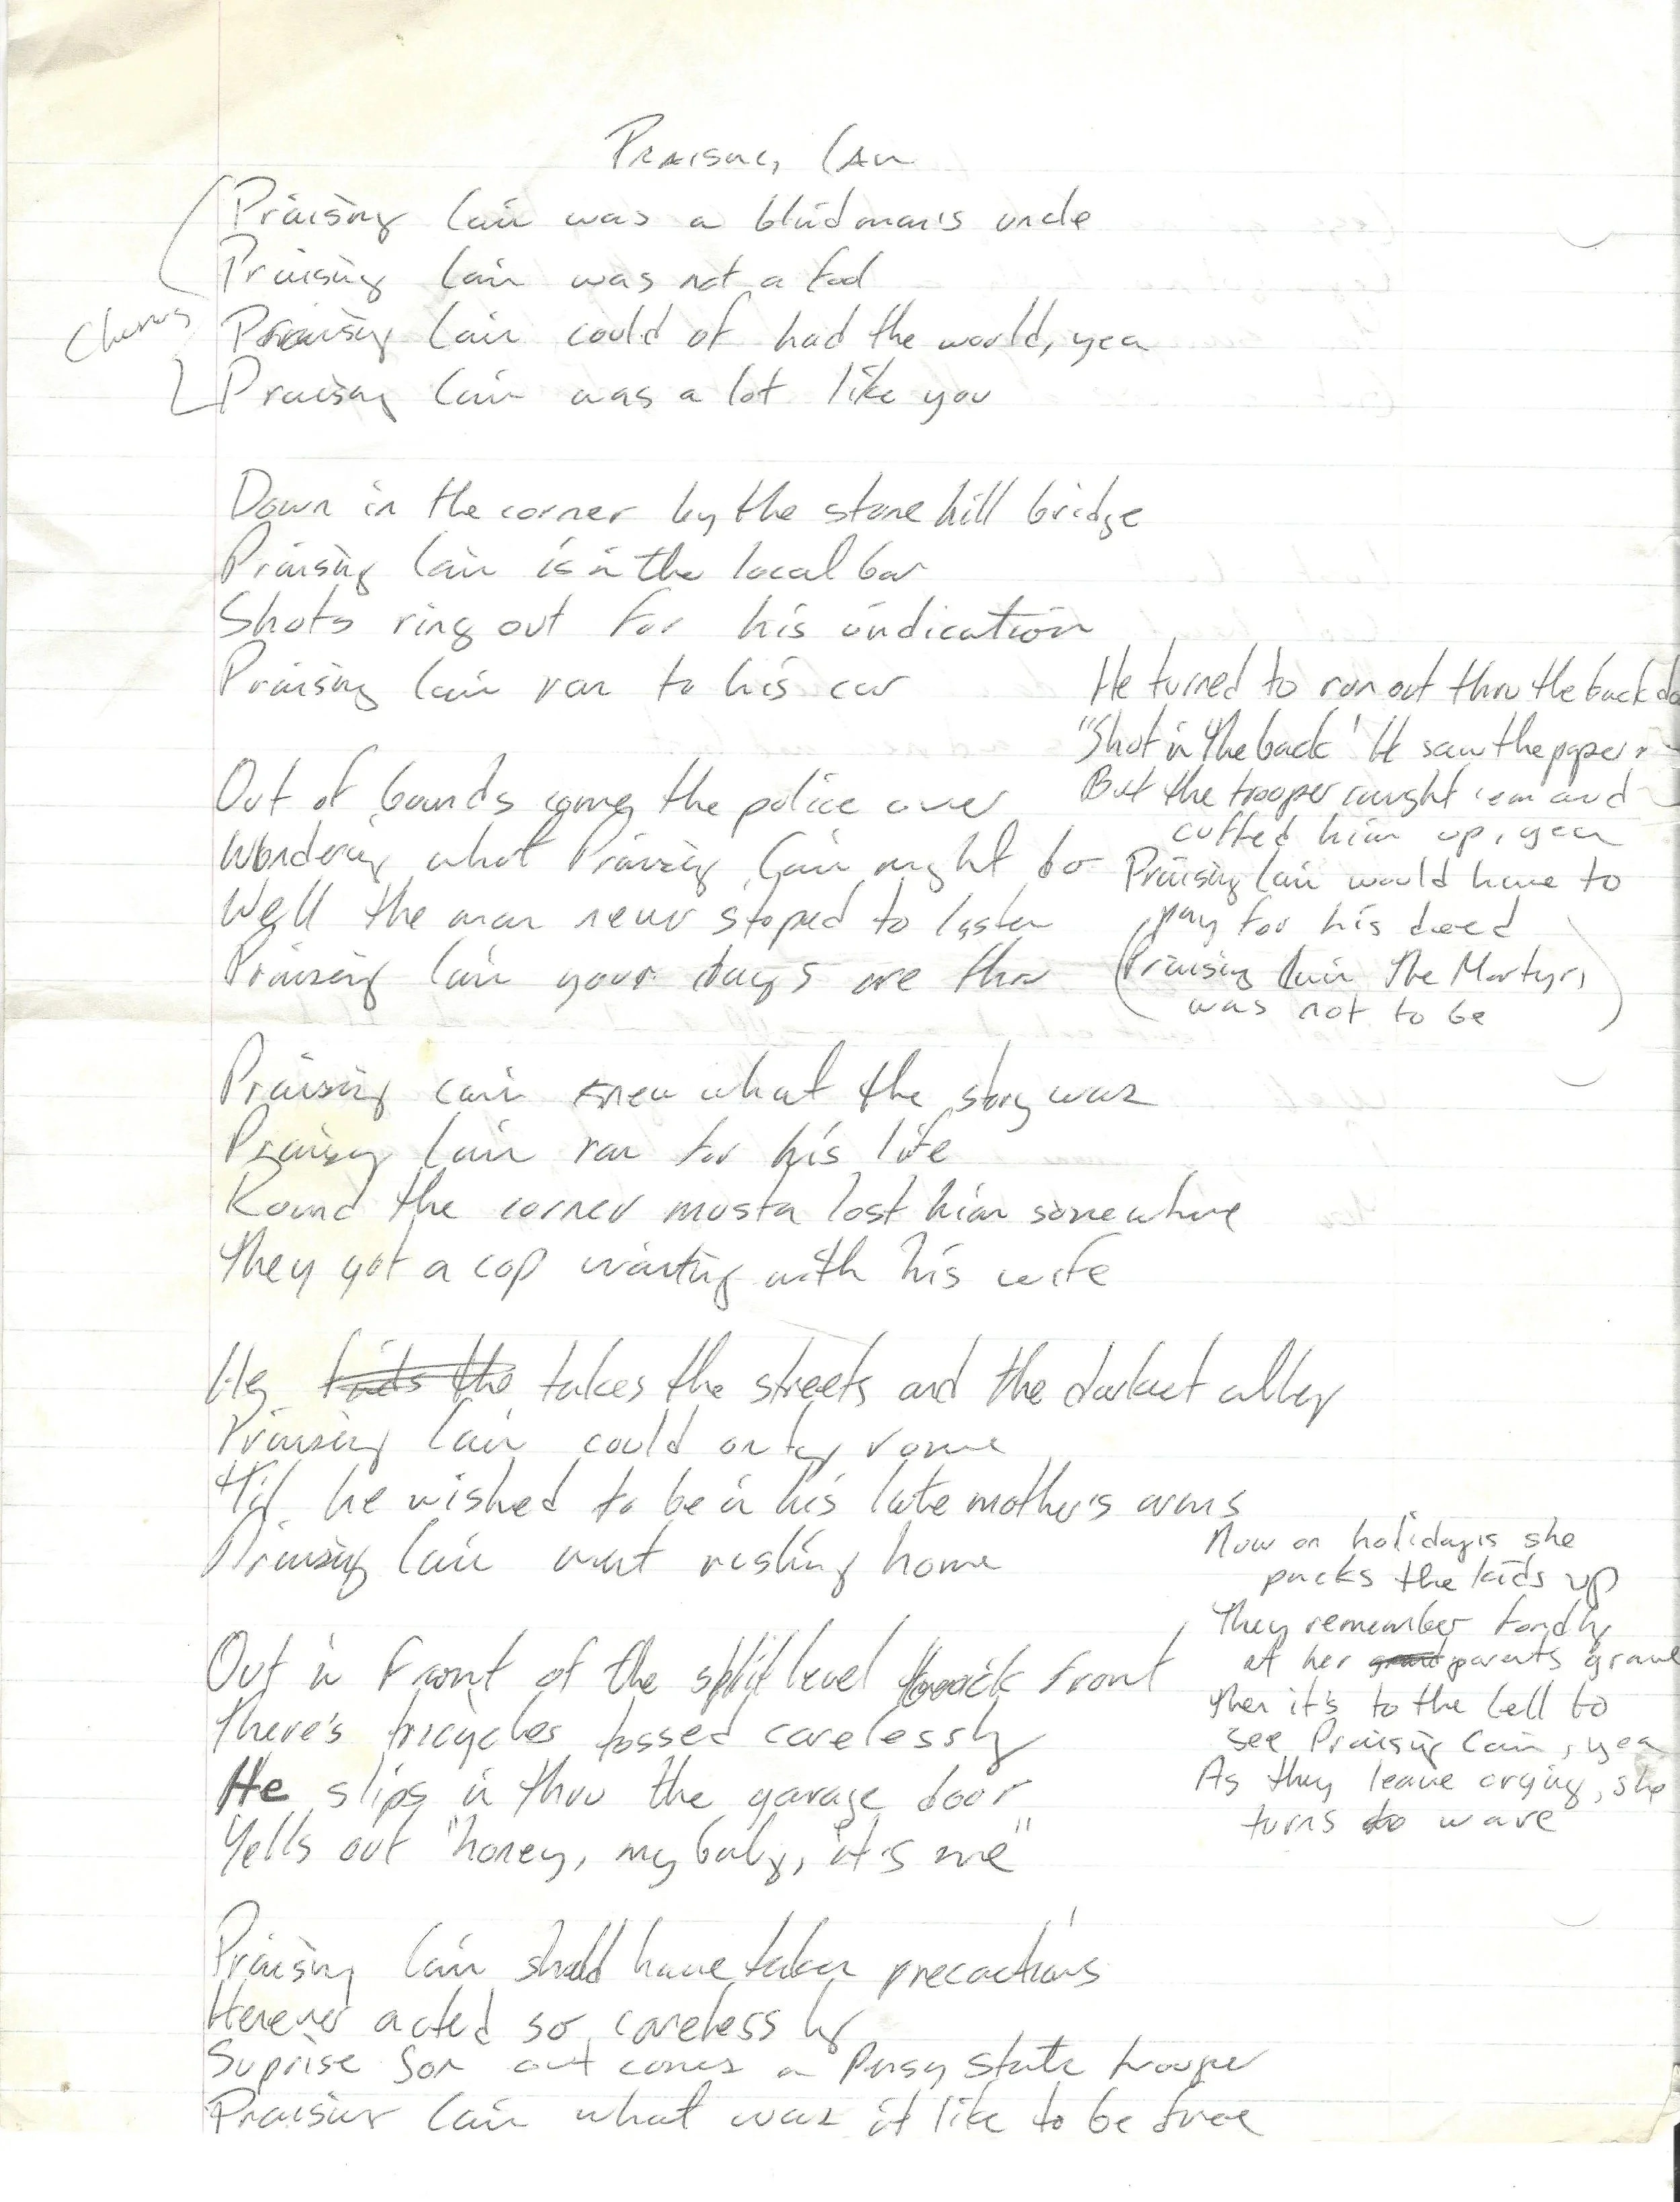 Praising Cain
Praising Cain was a blindman's uncle
Praising Cain was not a fool
Chorus
Praising Cain could of had the world, yea
Praising Cain was a lot like you
Down in the corner by the stone hill bridge
Praising Cain is in the local bar
Shots ring out for his indication
Praising Cain ran to his car
Out of bounds comes the police over
Wondering what Praising Cain might do
Well the man never stoped to listen
Praising Cain your days are thru
He turned to run out thru the back do
"Shot in the back" He saw the paper
But the trooper caught 'em and
cuffed him up, yea
Praising Cain would have to
pay for his deed
(Praising Cain The Martyr,
was not to be)
Praising Cain knew what the story was
Praising Cain ran for his life
Round the corner musta lost him somewhere
They got a cop waiting with his wife
He finds the takes the streets and the darkest alley
Praising Cain could only rome
'Til he wished to be in his late mother's arms
Praising Cain went rushing home
Out in front of the split level brick front
There's tricycles tossed carelessly
He slips in thru the garage door
Yells out "honey, my baby, it's me"
Now on holidays she
packs the kids up
They remember fondly
at her grand parents grave
Then it's to the Cell to
see Praising Cain, yea
As they leave crying, she
turns to wave
Praising Cain should have taken precactions
He never acted so carelessly
Suprise Son out comes a Pensy State trooper
Praising Cain what was it like to be free